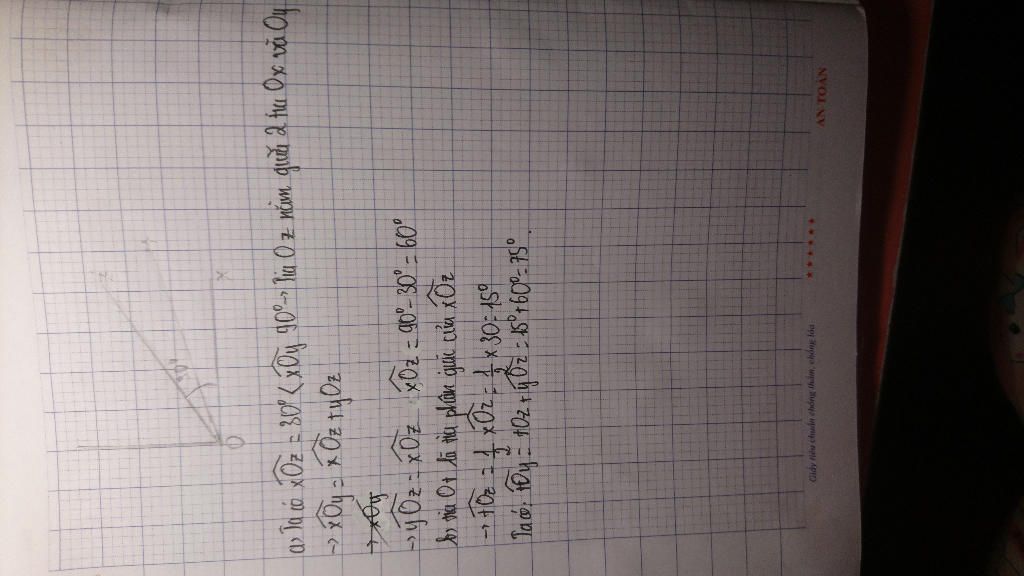 z
x
30°
O
a) Ta có xOz = 30° < xOy 90° → Tia Oz nằm giữa 2 tia Ox và Oy
→ xOy = xOz + yOz
→ xOy
→ yOz = xOz - xOz = 90° - 30° = 60°
b, tia Ot là tia phân giác của xOz
→ tOz = 1/2 xOz = 1/2 x 30 = 15°
Ta có: tOy = tOz + yOz = 15° + 60° = 75°.
Giấy tiêu chuẩn chống thấm, chống lóa
AN TOAN